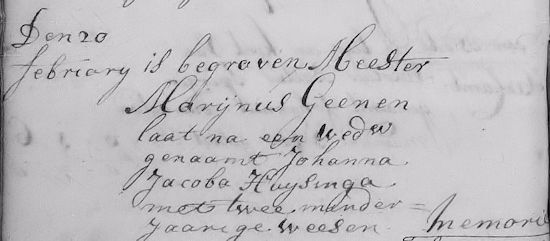 Den 20
february is begraven Meester
Marijnus Geenen
laat na een wedw
genaamt Johanna
Jacoba Huysinga
met twee minder=
jaarige weesen. Memorie